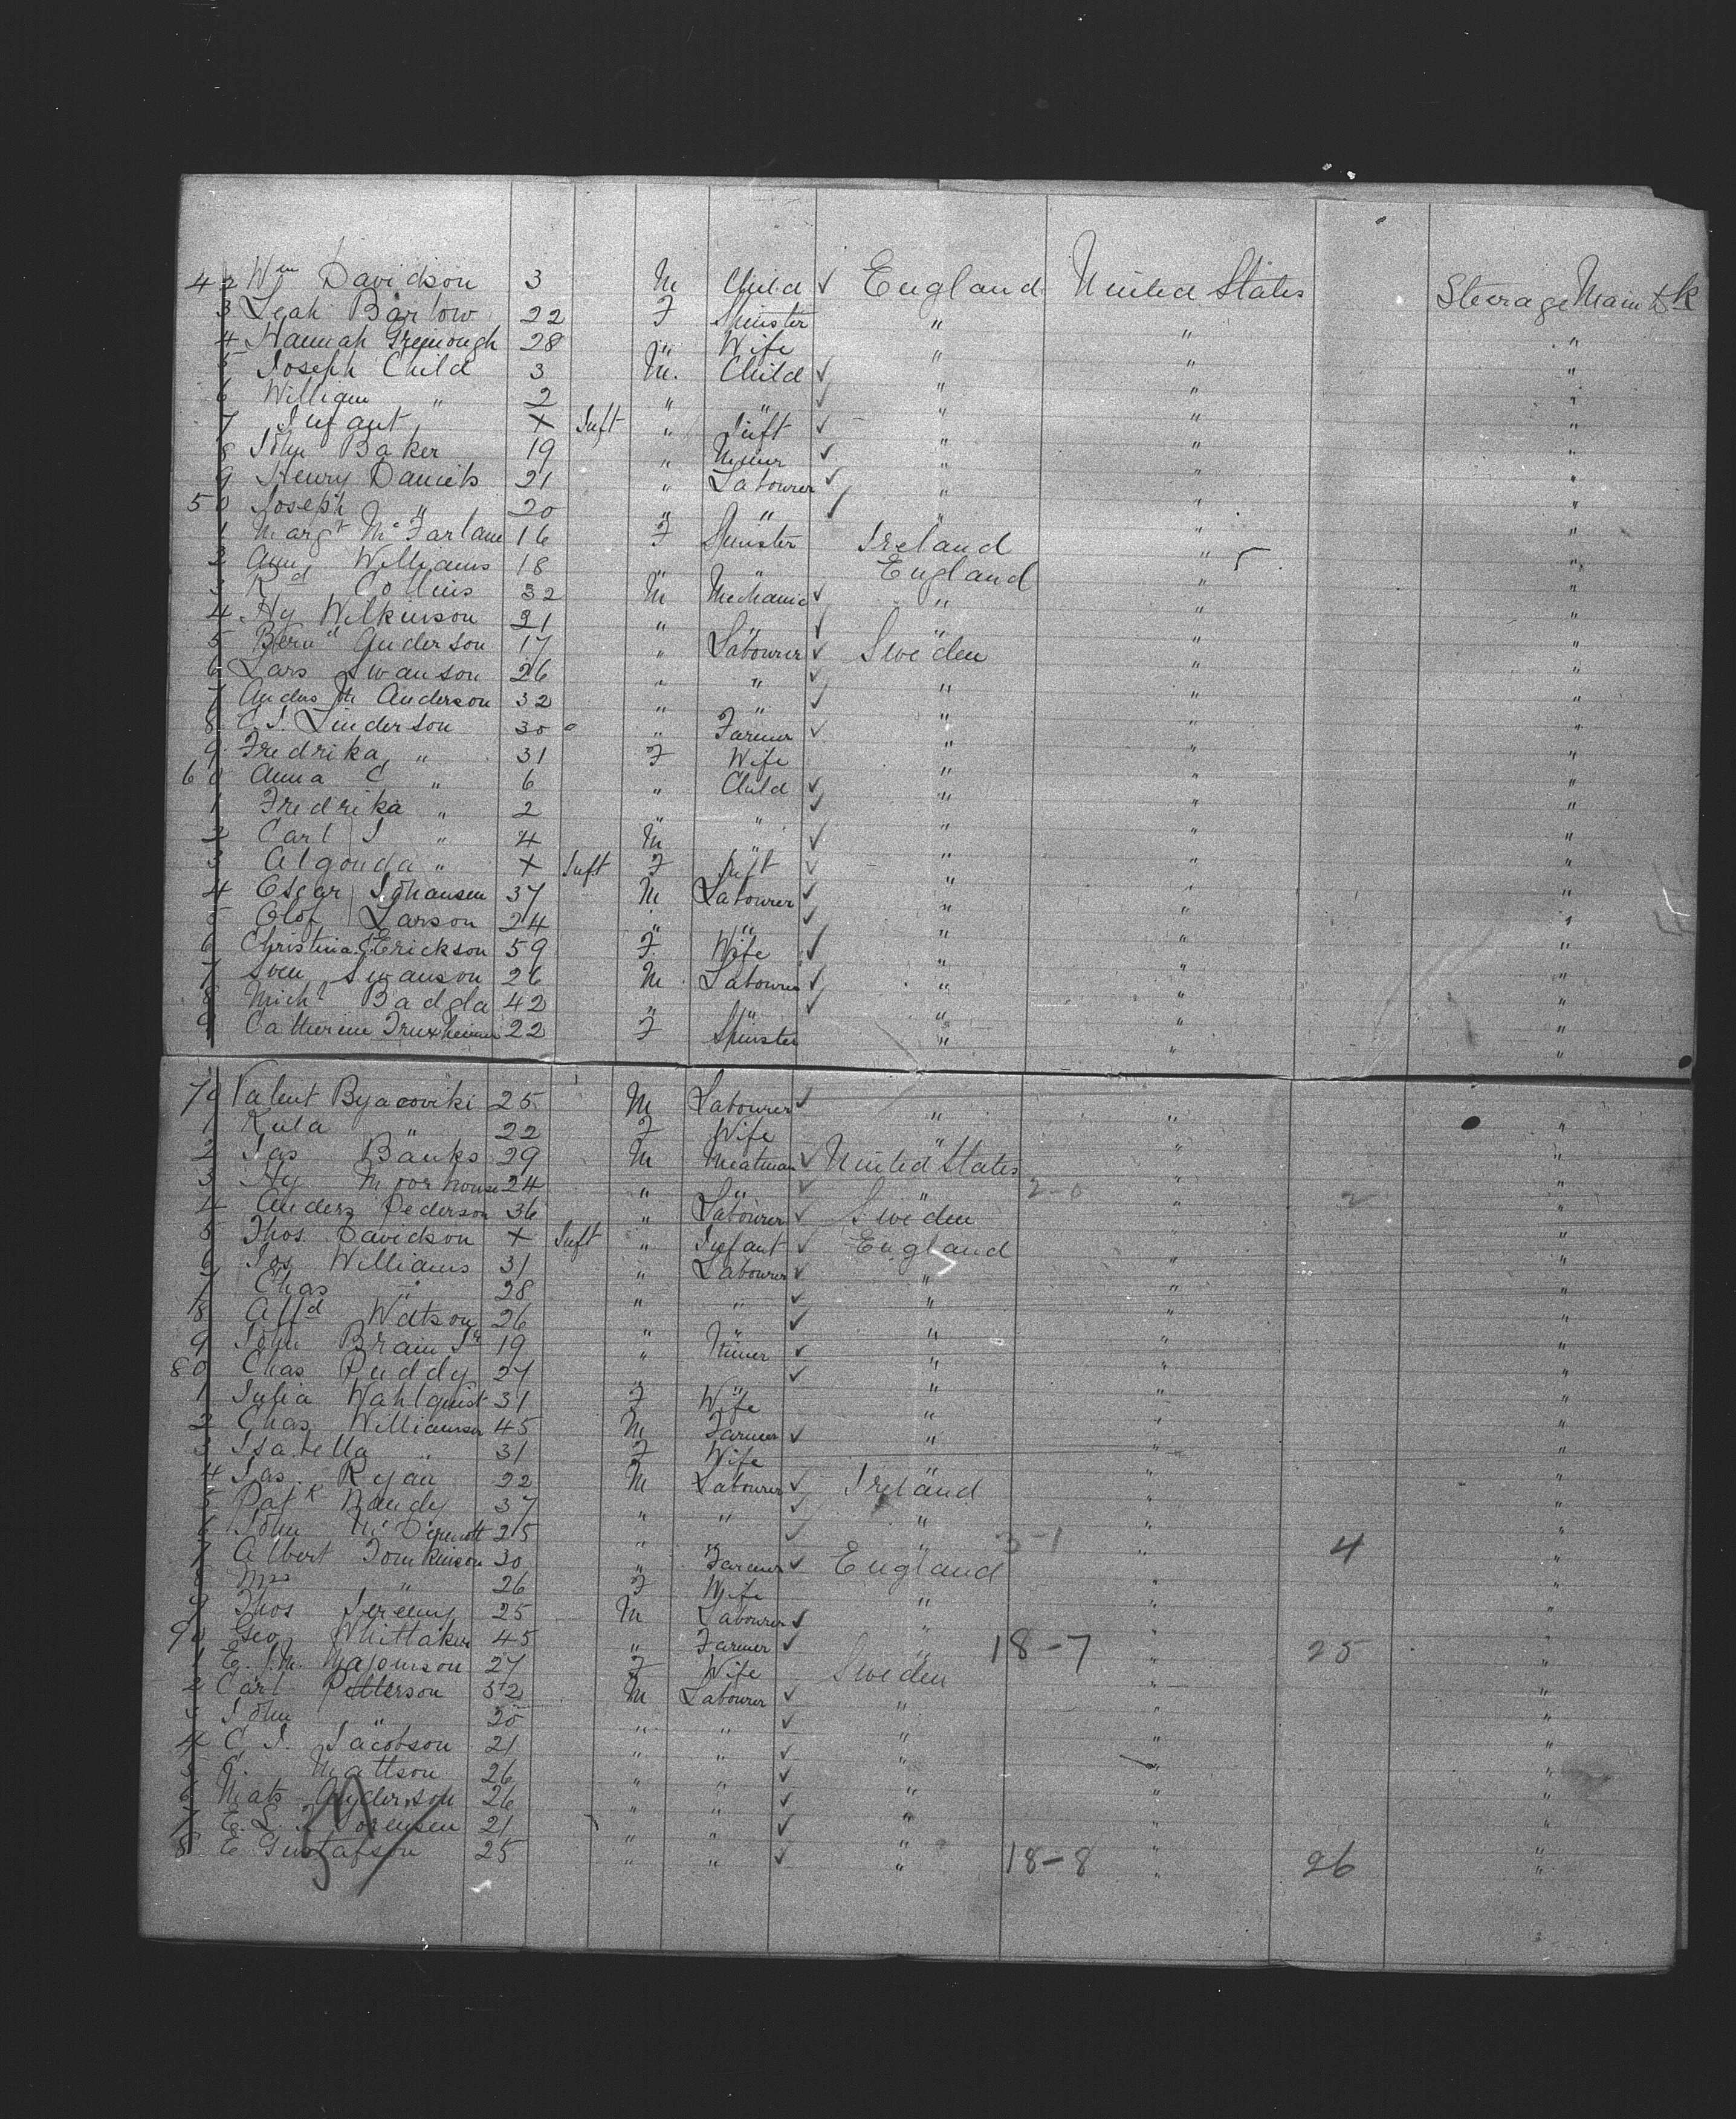 42 Wm Davidson 3 M Child ✓ England United States Steerage Main Dk
3 Leah Barlow 22 F Spinster " " "
4 Hannah Greenough 28 " Wife " " "
5 Joseph Child 3 M. Child ✓ " " "
6 William " 2 " " ✓ " " "
7 Infant " X Inft " Inft ✓ " " "
8 John Baker 19 " Miner ✓ " " "
9 Henry Daniels 21 " Labourer ✓ " " "
50 Joseph " 20 " " ✓ " " "
1 Margt McFarlane 16 F Spinster Ireland " "
2 Ann Williams 18 " " England " "
3 Rd Collins 32 M Mechanic ✓ " " "
4 Hy Wilkinson 21 " " ✓ " " "
5 Bernd Anderson 17 " Labourer ✓ Sweden " "
6 Lars Swanson 26 " " ✓ " " "
7 Andus M Anderson 32 " " ✓ " " "
8 C. J. Linderson 30 " Farmer ✓ " " "
9 Fredrika " 31 F Wife " " "
60 Anna C " 6 " Child ✓ " " "
1 Fredrika " 2 " " ✓ " " "
2 Carl J " 4 M " ✓ " " "
3 Algonda " X Inft F Inft ✓ " " "
4 Oscar Johansen 37 M Labourer ✓ " " "
5 Olof Larson 24 " " ✓ " " "
6 Christina Erickson 59 F Wife ✓ " " "
7 Sven Swanson 26 M Labourer ✓ " " "
8 Michl Badgla 42 " " ✓ " " "
9 Catherine 22 F Spinster " " "
70 Valent Byacoviki 25 M Labourer ✓ " " "
1 Kula " 22 F Wife " " "
2 Jas Banks 29 M Meatman ✓ United States " "
3 Hy Moorhouse 24 " " ✓ " 2-0 " 2 "
4 Anders Pederson 36 " Labourer ✓ Sweden " "
5 Thos. Davidson X Inft " Infant ✓ England " "
6 Jos Williams 31 " Labourer ✓ " " "
7 Chas " 28 " " ✓ " " "
8 Alfd Watson 26 " " ✓ " " "
9 John Brain Jr 19 " Miner ✓ " " "
80 Chas Puddy 27 " " ✓ " " "
1 Julia Wahlquist 31 F Wife " " "
2 Chas. Williamson 45 M Farmer ✓ " " "
3 Isabella " 31 F Wife " " "
4 Jas. Ryan 22 M Labourer ✓ Ireland " "
5 Patk Nandy 37 " " ✓ " " "
6 John McDermott 25 " " ✓ " 3-1 " 4 "
7 Albert Tomkinson 30 " Farmer ✓ England " "
8 Mrs " 26 F Wife " " "
9 Thos Jeremy 25 M Labourer ✓ " " "
90 Geo. Whittaker 45 " Farmer ✓ " 18-7 " 25 "
1 E. J. M. 27 F Wife Sweden " "
2 Carl Petterson 52 M Labourer ✓ " " "
3 John " 20 " " ✓ " " "
4 C. J. Jacobson 21 " " ✓ " " "
5 Mattson 26 " " ✓ " " "
6 Mats Anderson 26 " " ✓ " " "
7 E. L. F Sorensen 21 " " ✓ " " "
8 E Gustafson 25 " " ✓ " 18-8 " 26 "